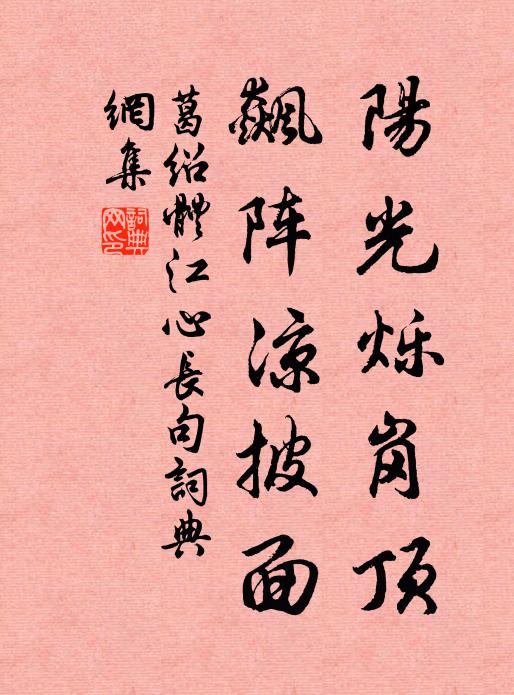 陽光烁崗頂
飆阵凉披面
葛绍體江心長句詞典
網集
詞典網印